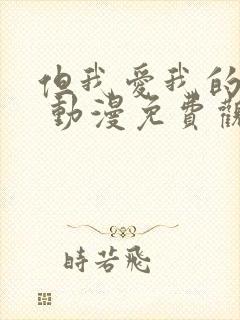 但我愛我的
動漫免費觀
時若飛